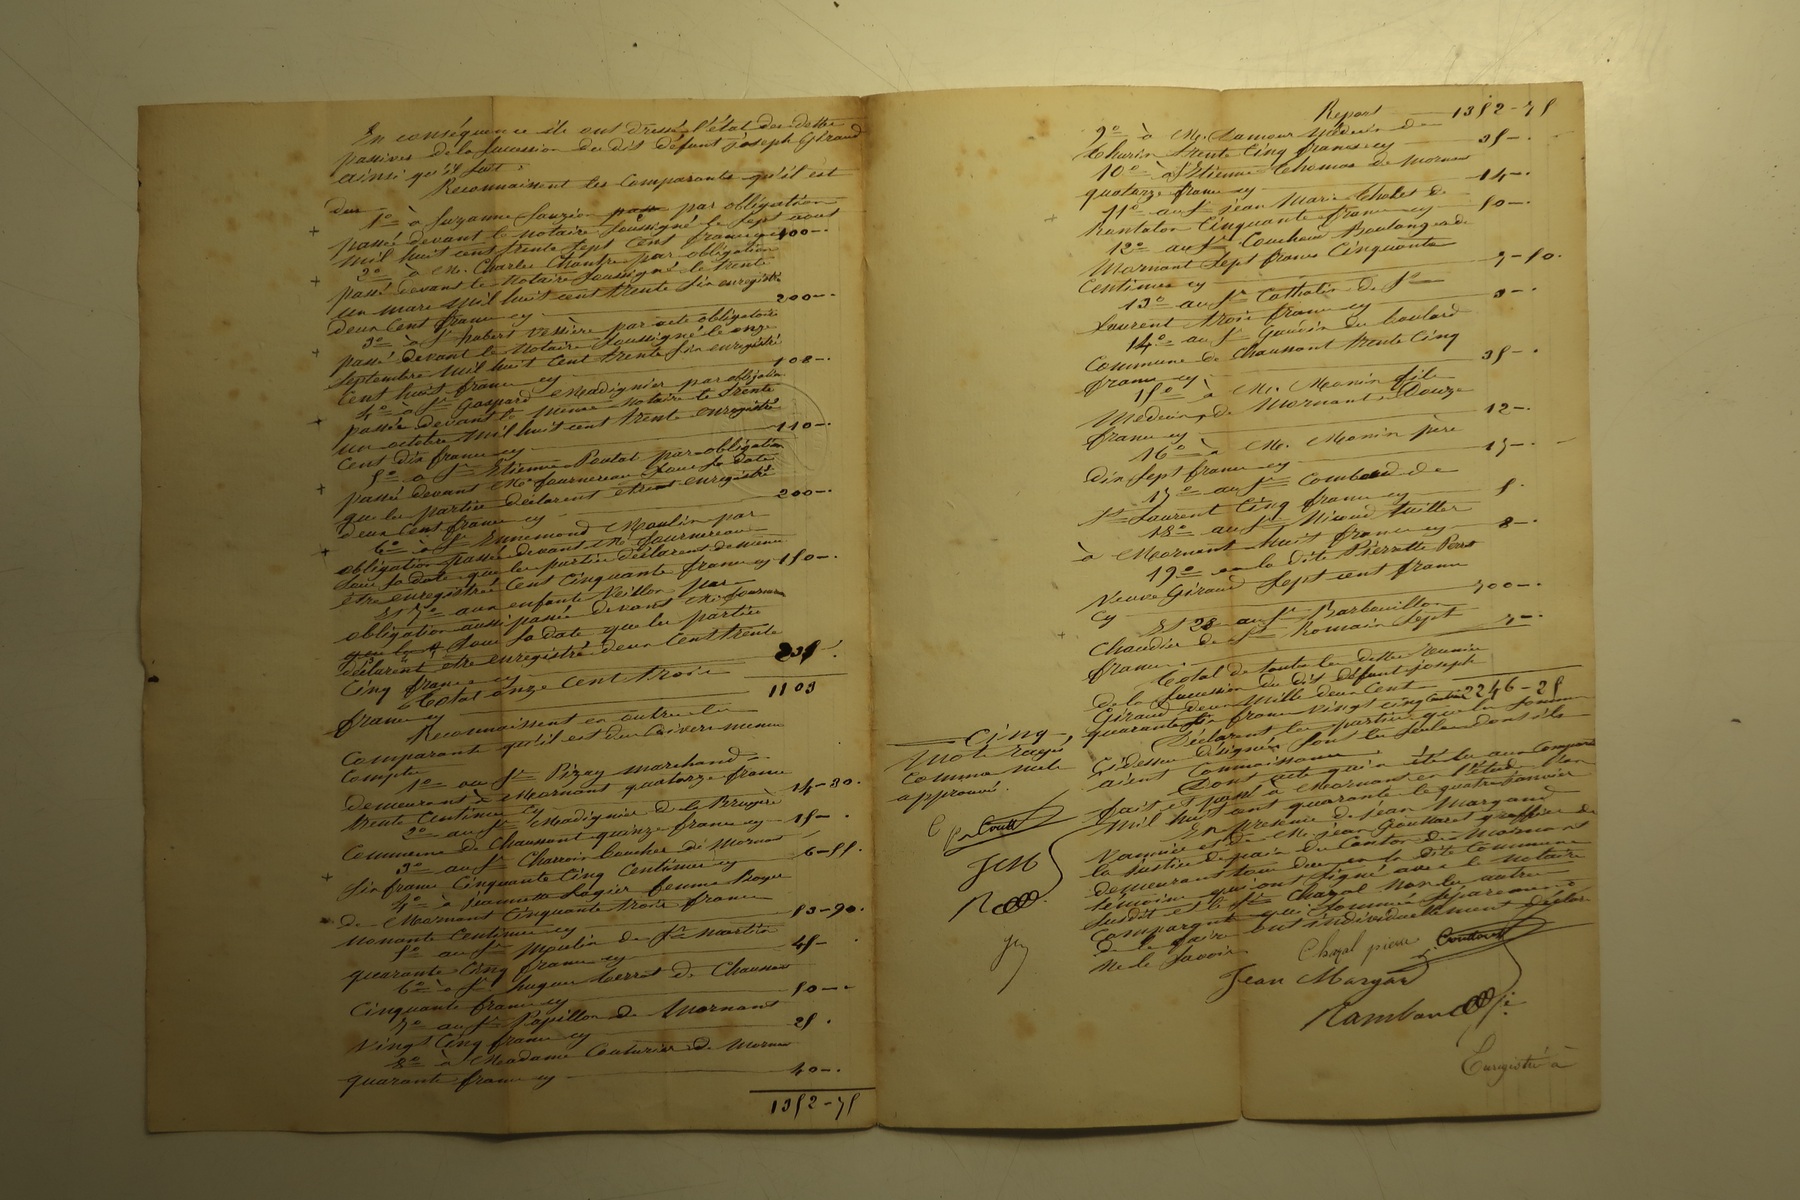 En conséquence ils ont dressé l'état des dettes
passives de la succession du dit défunt joseph Giraud
ainsi qu'il suit :
Reconnaissent les Comparants qu'il est
dus
1º à Suzanne par obligation
passée devant le notaire soussigné le sept aout
mil huit cent trente sept Cent francs cy 100-.
2º à M. Charles Chantre par obligation
passé devant le Notaire soussigné le trente
un mars mil huit cent trente six enregistré
deux Cent francs cy 200-.
3º à Sr robert par acte obligatoire
passé devant le Notaire soussigné le onze
Septembre mil huit Cent trente six enregistré
Cent huit francs cy 108-.
4º à Sr Gaspard Madignier par obligation
passée devant le même Notaire le trente
un octobre mil huit cent trente enregistré
Cent dix francs cy 110-.
5º à Sr Etienne Poulat par obligation
passé devant Me fournereau sous sa date
que les parties déclarent être enregistré
deux Cent francs cy 200-.
6º à Sr Ennemond Moulin par
obligation passée devant Me fournereau
sous sa date que les parties déclarent de même
être enregistré Cent Cinquante francs cy 150-.
Et 7º aux enfants Veillon par
obligation aussi passée devant Me
sous sa date que les parties
déclarent être enregistré deux Cent trente
Cinq francs cy 235.
Total onze Cent trois
francs cy 1103
Reconnaissent en outre les
Comparants qu'il est du divers menus
Comptes
1º au Sr Pizay marchand
demeurant à Mornant quatorze francs
trente Centimes cy 14-30.
2º au Sr Madignier de la Bruyère
Commune de Chaussant quinze francs cy 15-.
3º au Sr Charroin boucher de Mornant
six francs Cinquante Cinq Centimes cy 6-55.
4º à jeannette Logier femme Boyer
de Mornant Cinquante trois francs
nonante Centimes cy 53-90.
5º au Sr Moulin de St Martin
quarante Cinq francs cy 45-
6º à Sr hugues terret de Chaussant
Cinquante francs cy 50-.
7º au Sr Papillon de Mornant
Vingt Cinq francs cy 25.
8º à Madame Couturier de Mornant
quarante francs cy 40-.
1352-75
Report 1352-75
9º à M. Lamour Médecin de
thurin trente Cinq francs cy 35-.
10º à Etienne Thomas de Mornant
quatorze francs cy 14-.
11º au Sr jean Marie Cholet de
Rontalon Cinquante francs cy 50-.
12º au Sr Couchoux Boulanger de
Mornant Sept francs Cinquante
Centimes cy 7-50.
13º au Sr Catholin de St
Laurent trois francs cy 3-.
14º au Sr Gaudin du boulard
Commune de Chaussant trente Cinq
francs cy 35-.
15º à M. Monin fils
Médecin de Mornant Douze
francs cy 12-.
16º à M. Monin père
Dix Sept francs cy 17-.
17º au Sr Combard de
St Laurent Cinq francs cy 5.
18º au Sr
à Mornant huit francs cy 8-.
19º à la dite Pierrette
Veuve Giraud Sept cent francs
cy 700-.
Et 20 au Sr Barbouillon
Chaudier de St Romain Sept
francs. 7-.
Total de toutes les dettes réunies
de la succession du dit défunt joseph
Giraud deux Mille deux Cent
quarante six francs vingt cinq centimes 2246-25
Déclarent les parties que les sommes
Ci dessus désignées sont les seules dont ils
aient Connaissance.
Dont acte qui a été lu aux Comparants
fait et passé à Mornant en l'étude l'an
Mil huit cent quarante le quatre janvier
En présence de jean Margand
Vannier et de M. jean Gouttaret greffier de
la justice de paix du Canton de Mornant
demeurant tous deux en la dite Commune
témoins qui ont signé avec le notaire
susdit et le Sr Chazal Non les autres
Comparants qui sommés séparément
de le faire ont individuellement déclaré
ne le savoir.
Cinq
mots rayés
comme nuls
approuvés.
JM
Chazal pierre
Jean Margand
Enregistré à